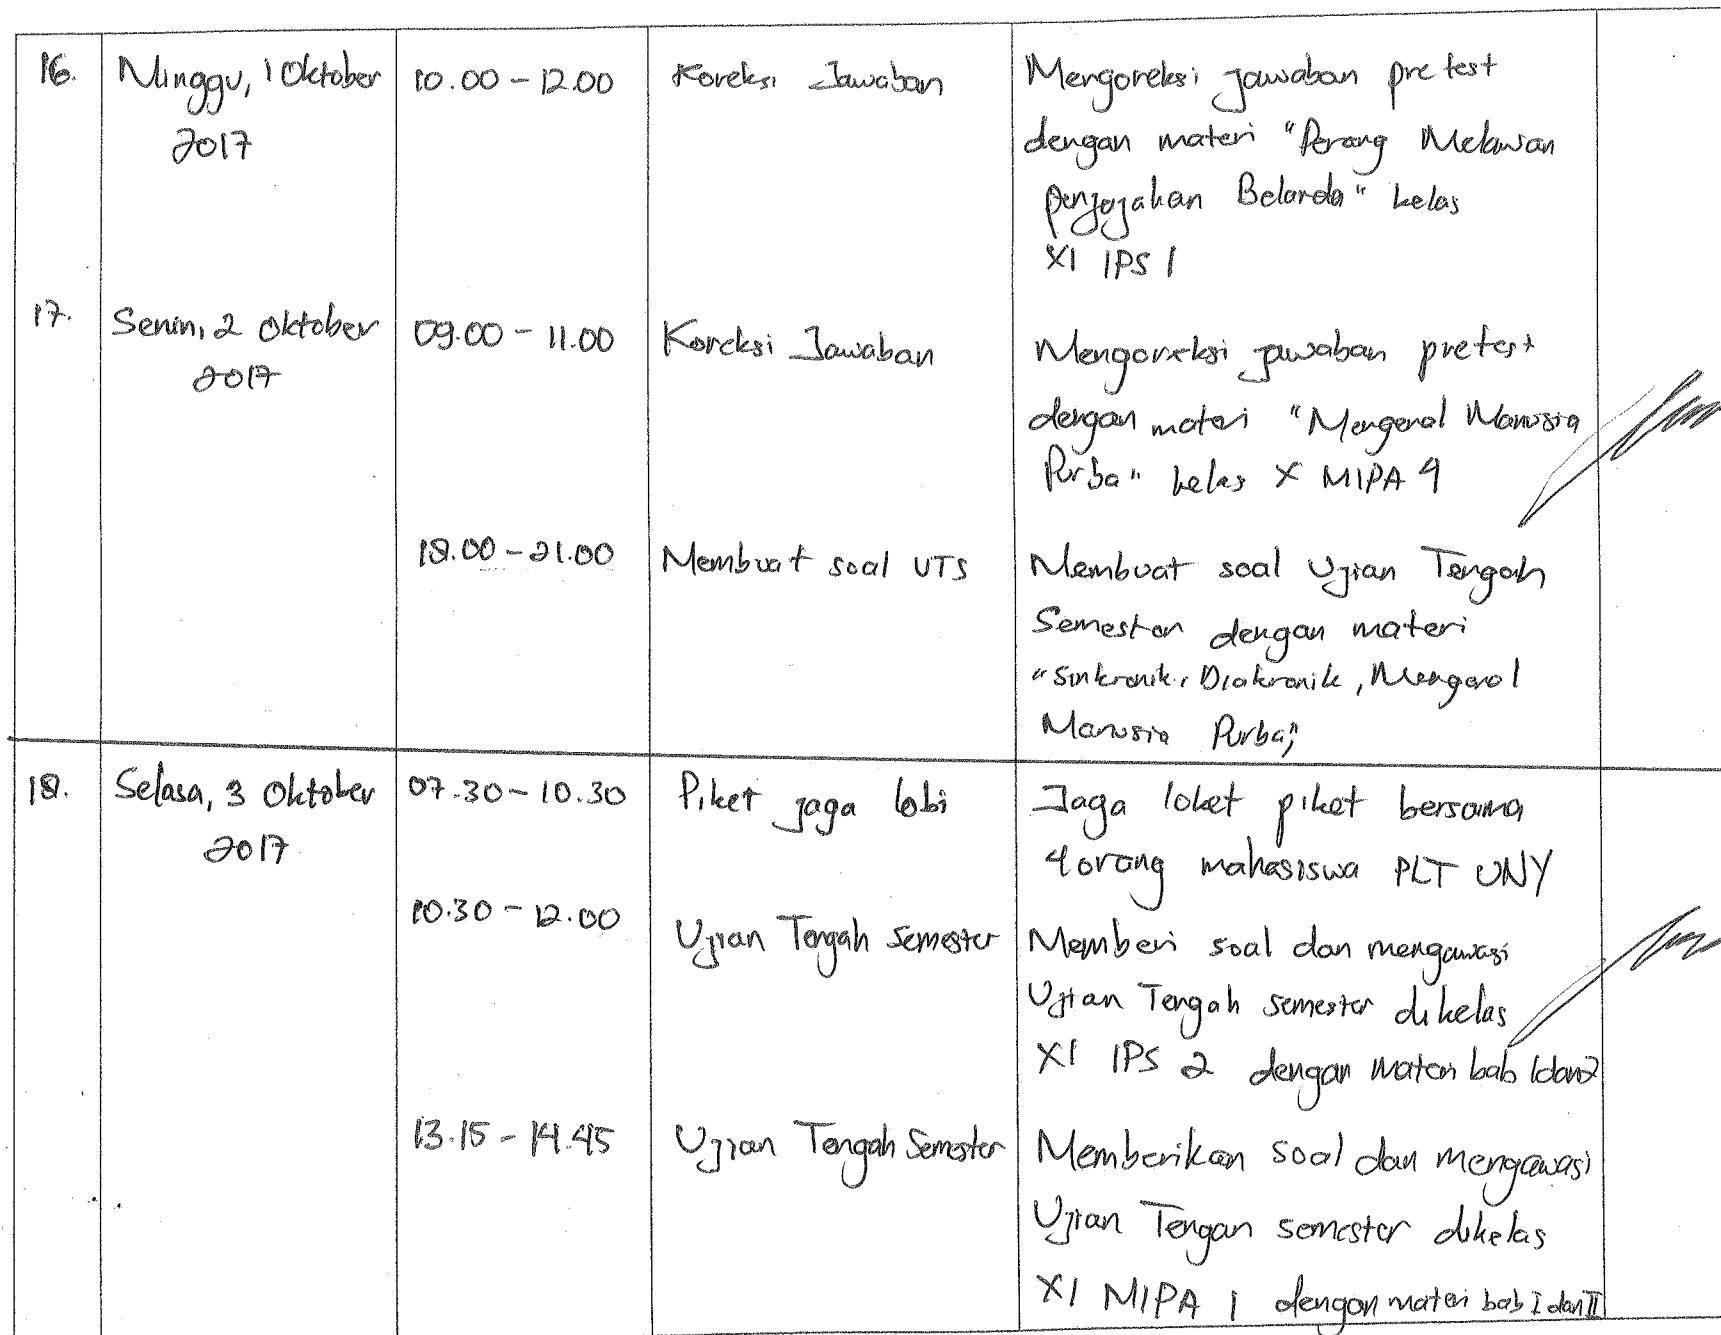 16. Minggu, 1 Oktober 10.00 - 12.00 Koreksi Jawaban Mengoreksi jawaban pretest
2017 dengan materi "Perang Melawan
penjajahan Belanda" kelas
XI IPS 1
17. Senin, 2 Oktober 09.00 - 11.00 Koreksi Jawaban Mengoreksi jawaban pretest
2017 dengan materi "Mengenal Manusia
Purba" kelas X MIPA 4
18.00 - 21.00 Membuat soal UTS Membuat soal Ujian Tengah
Semester dengan materi
"Sinkronik, Diakronik, Mengenal
Manusia Purba"
18. Selasa, 3 Oktober 07.30 - 10.30 Piket jaga lobi Jaga loket piket bersama
2017 4 orang mahasiswa PLT UNY
10.30 - 12.00 Ujian Tengah Semester Memberi soal dan mengawasi
Ujian Tengah semester dikelas
XI IPS 2 dengan materi bab 1 dan 2
13.15 - 14.45 Ujian Tengah Semester Memberikan soal dan mengawasi
Ujian Tengah semester dikelas
XI MIPA 1 dengan materi bab I dan II